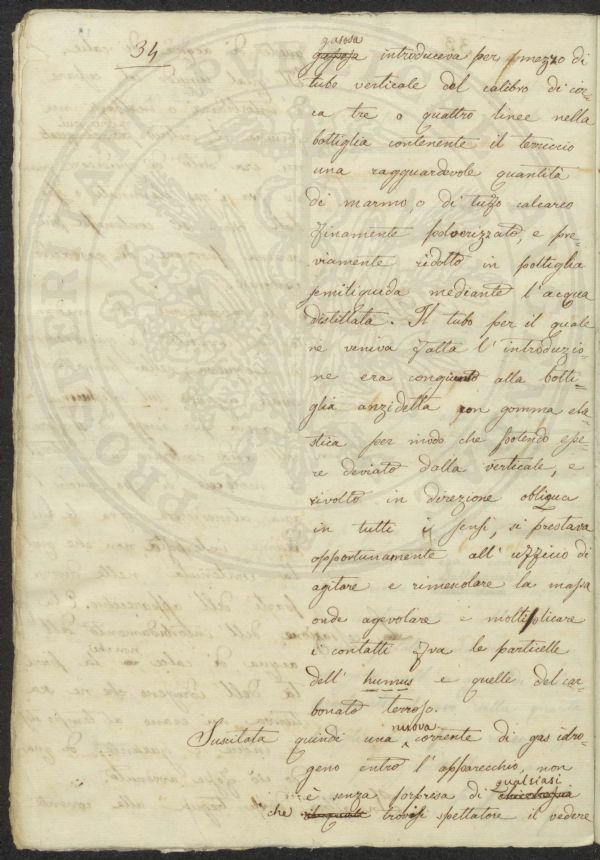 34
gasosa
gassosa introduceva per mezzo di
tubo verticale del calibro di cir-
ca tre o quattro linee nella
bottiglia contenente il terriccio
una ragguardevole quantità
di marmo, o di tuffo calcareo
finamente polverizzato, e pre-
viamente ridotto in poltiglia
semiliquida mediante l'acqua
distillata. Il tubo per il quale
ne veniva fatta l'introduzio-
ne era congiunto alla botti-
glia anzidetta con gomma ela-
stica per modo che potendo esse-
re deviato dalla verticale, e
rivolto in direzione obliqua
in tutti i sensi, si prestava
opportunamente all'uffizio di
agitare e rimescolare la massa
onde agevolare e moltiplicare
i contatti fra le particelle
dell'humus e quelle del car-
bonato terroso.
nuova
Suscitata quindi una corrente di gas idro-
geno entro l'apparecchio, non
qualsiasi
è senza sorpresa di
che trovisi spettatore il vedere